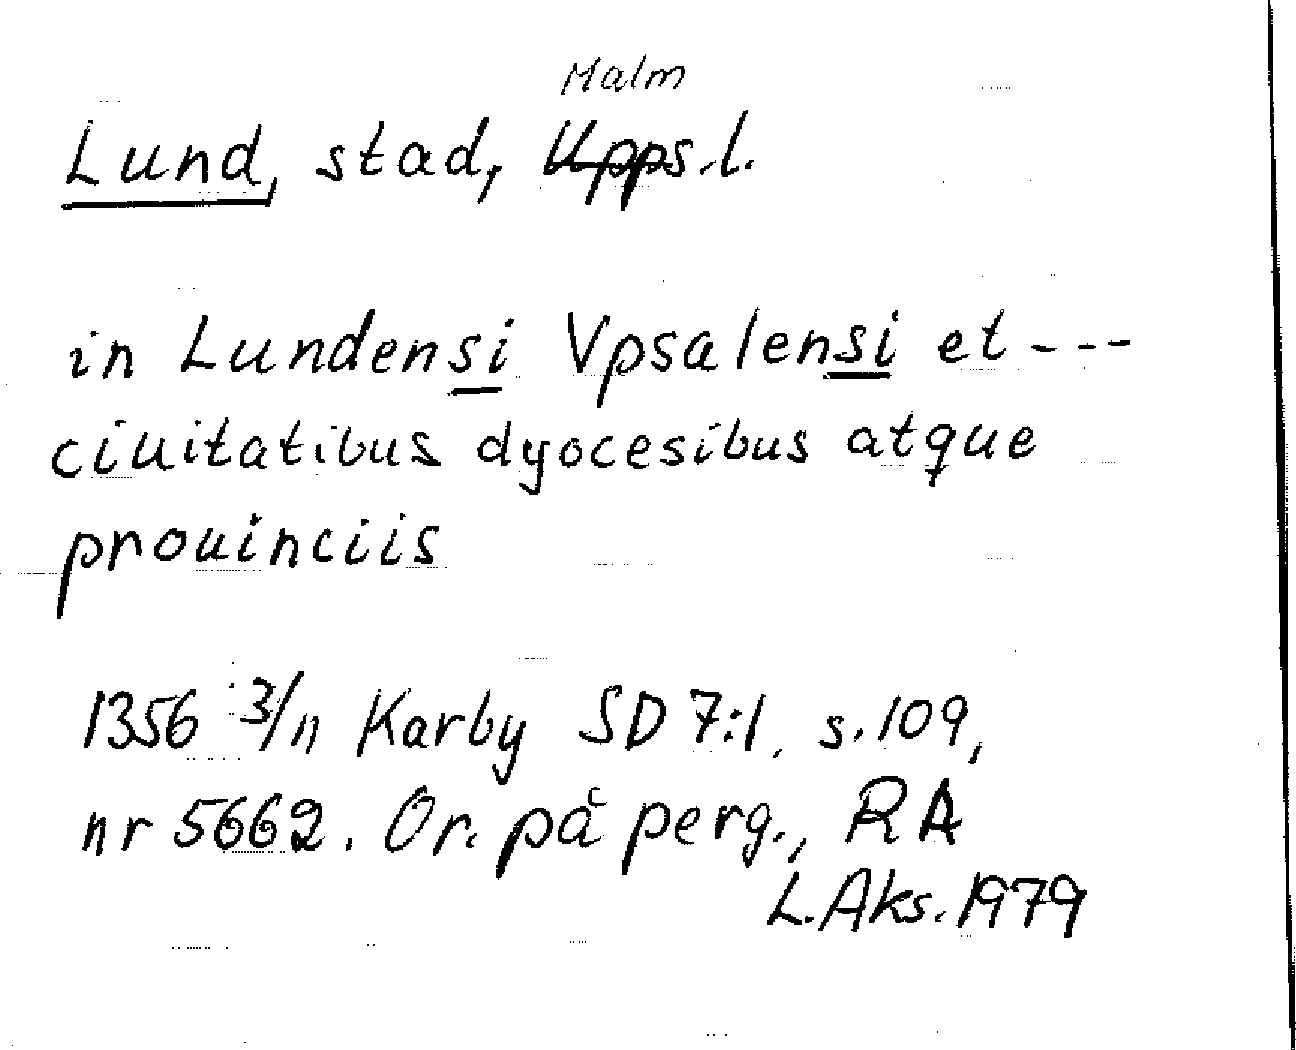 Malm
Lund, stad, Upps.l.
in Lundensi Vpsalensi et ---
ciuitatibus dyocesibus atque
prouinciis
1356 3/11 Karby SD 7:1, s.109,
nr 5662. Or. på perg., RA
L.Aks.1979